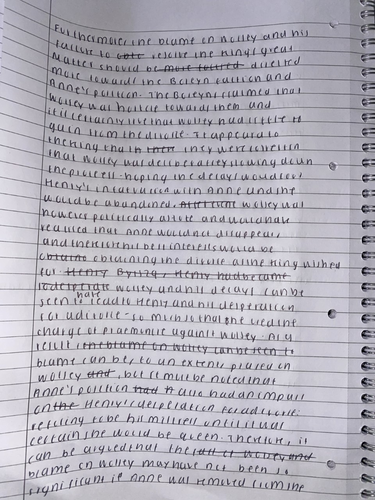 Furthermore, the blame on Wolsey and his
failure to resolve the King's Great
Matter should be more suited directed
more toward the Boleyn faction and
Anne's position. The Boleyns claimed that
Wolsey was hostile towards them and
it is certainly true that Wolsey had little to
gain from the divorce. It appeared to
the king that in they were certain
that Wolsey was deliberately slowing down
the process - hoping the delays would
Henry's infatuation with Anne and she
would be abandoned. Wolsey was
however politically astute and would have
realised that Anne would not disappear,
and therefore his best interests would be
obtaine obtaining the divorce as the King wished
for. Henry By 1529, Henry had became
so desperate Wolsey and his delays can be
seen to have lead to Henry and his desperation
for a divorce - so much so that she used the
charge of praemunire against Wolsey. As a
result, the blame on Wolsey can be seen to
blame can be, to an extent, placed on
Wolsey and, but it must be noted that
Anne's position had h also had an impact
on the Henry's desperation for a divorce:
refusing to be his mistress until it was
certain she would be queen. Therefore, it
can be argued that the of Wolsey and
blame on Wolsey may have not been so
significant if Anne was removed from the